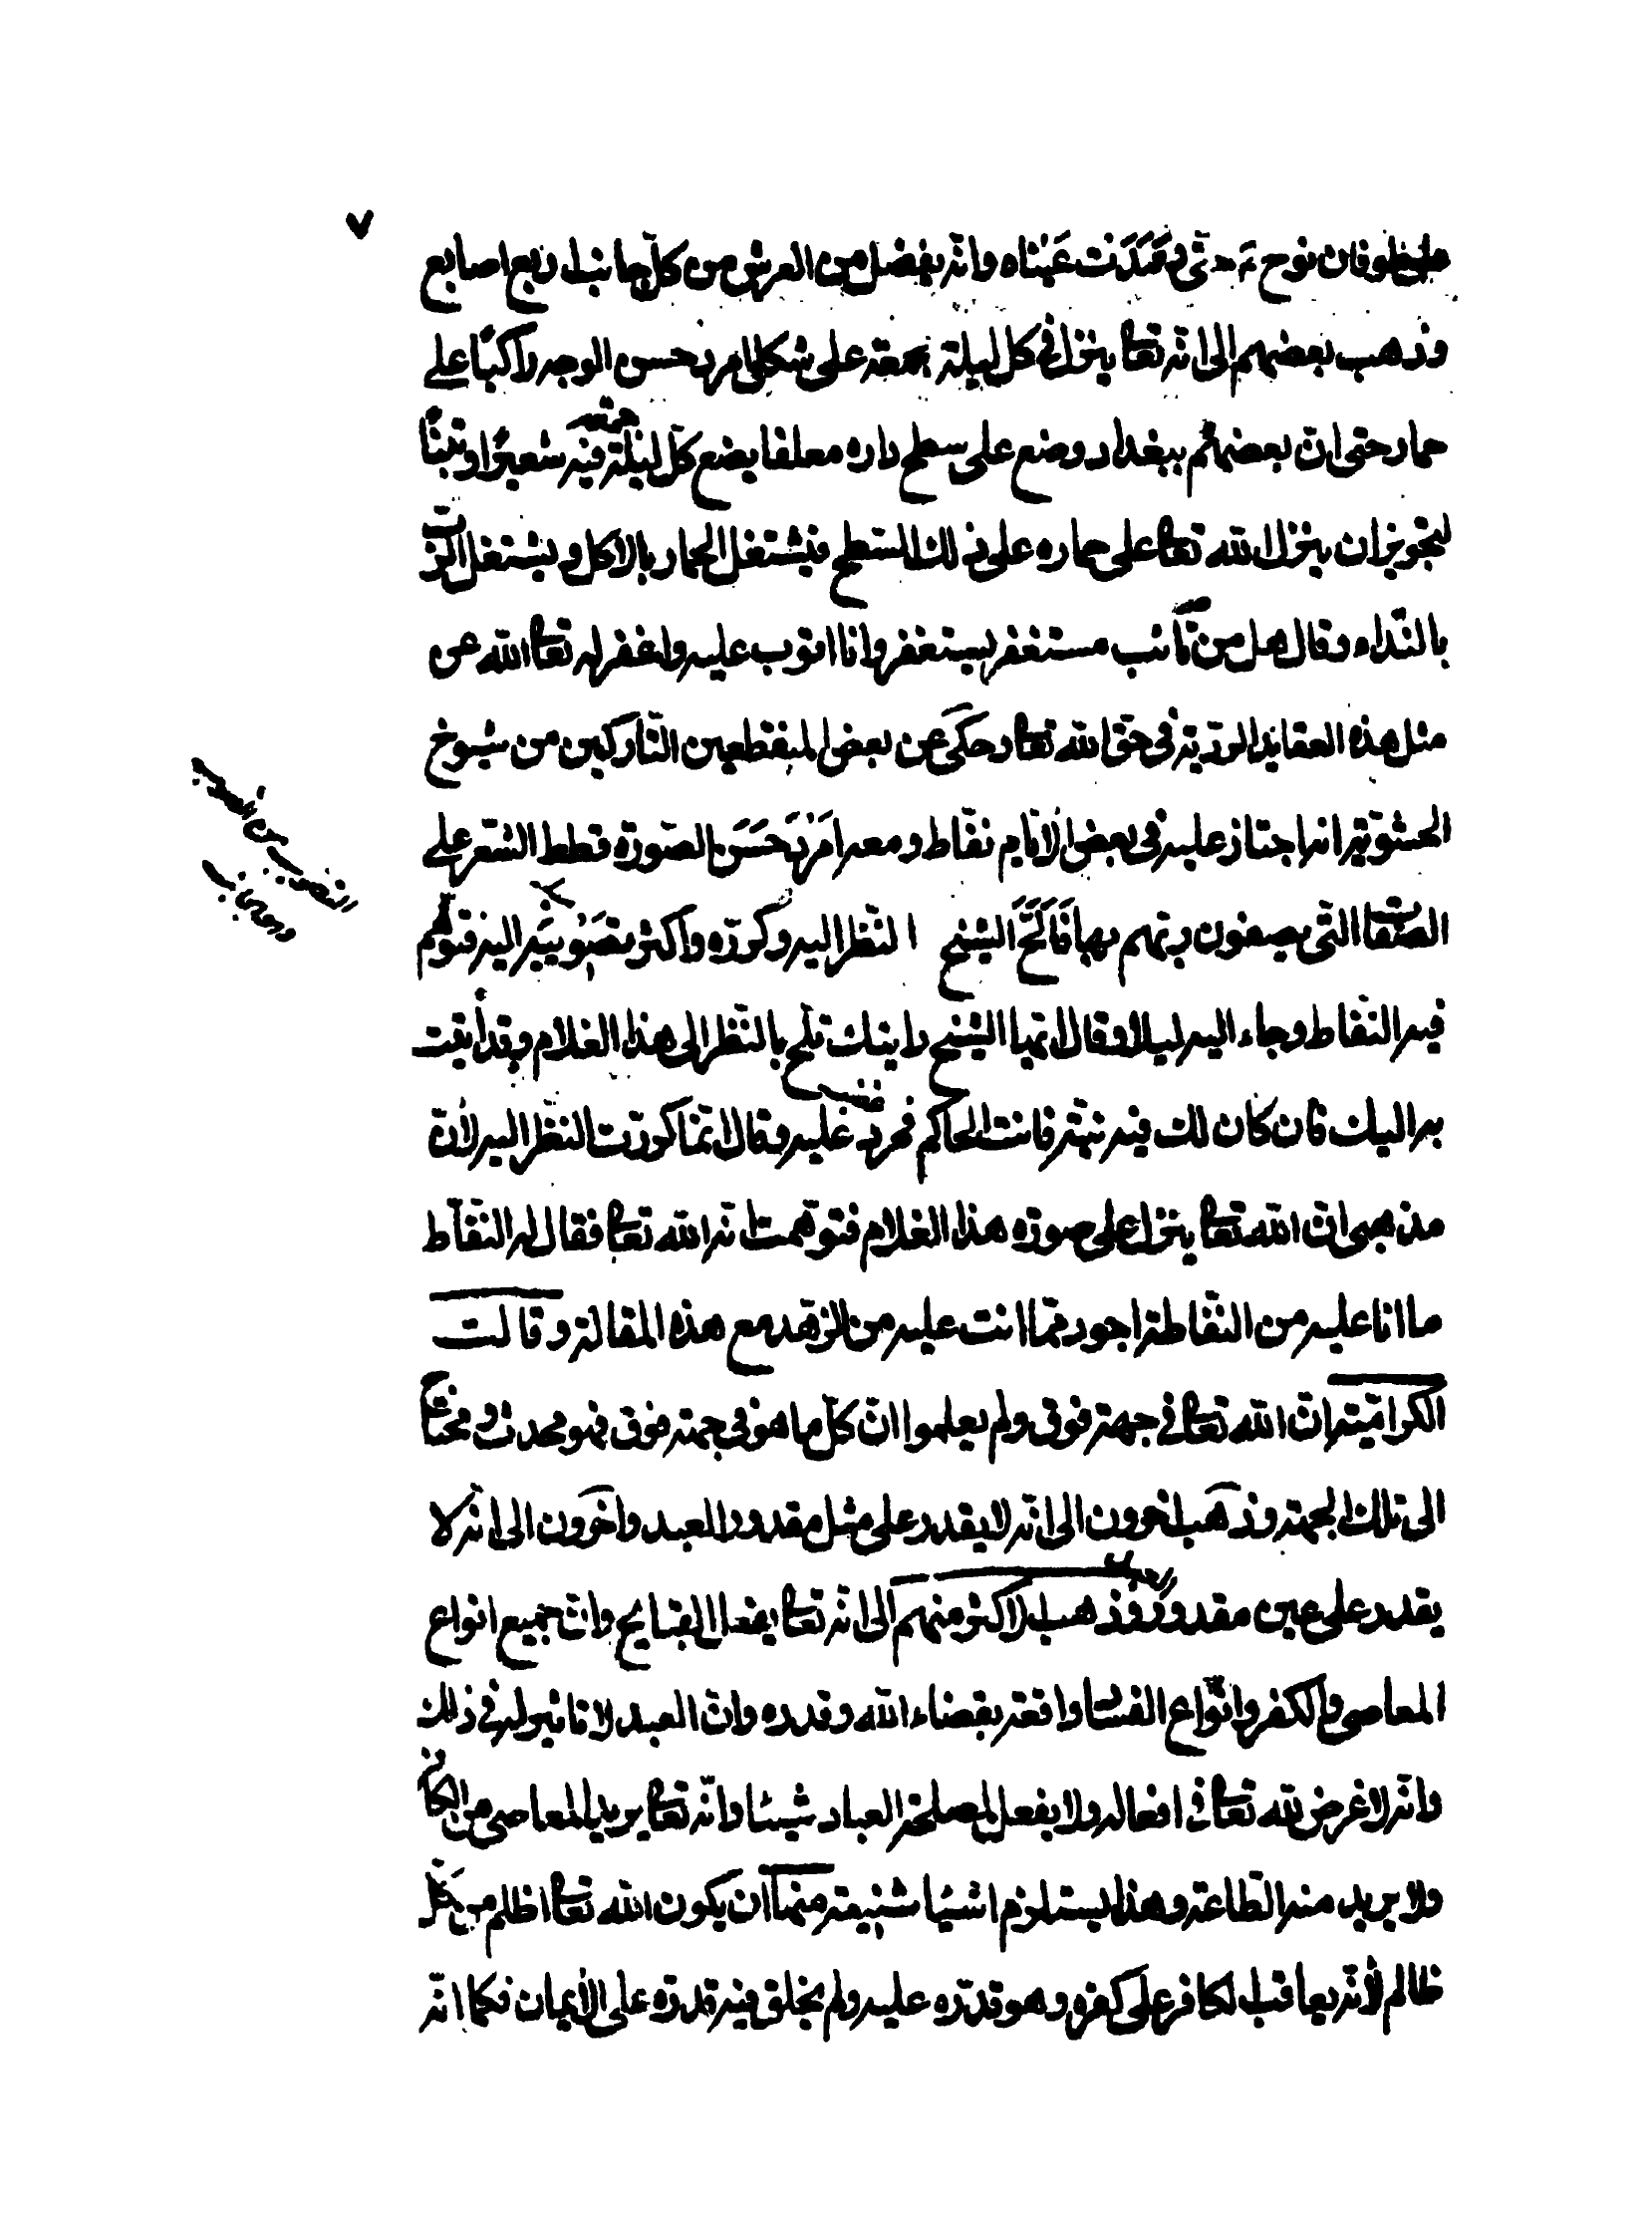 ٧
على طوفان نوح ع حتى رمدت عيناه وانه يفضل من العرش من كل جانب اربع اصابع
وذهب بعضهم الى انه تعالى ينزل فى كل ليلة جمعة على شكل امرد حسن الوجه راكبًا على
حمار حتى ان بعضهم ببغداد وضع على سطح داره معلفا يضع كل ليلة جمعة فيه شعيرًا وتبنًا
لتجويز ان ينزل الله تعالى على حماره على ذلك السطح فيشتغل الحمار بالاكل ويشتغل الرب
بالنداء وقال هل من تائب مستغفر يستغفر وانا اتوب عليه واغفر له تعالى الله عن
مثل هذه العقايد الرديّة فى حق الله تعالى وحكى عن بعض المنقطعين التاركين من شيوخ
الحشويّة انه اجتاز عليه فى بعض الايام نفّاط ومعه امرد حسن الصّورة قطط الشّعر على
الصّفات التى يصفون ربهم بها فَاَلَحَّ الشيخ النّظر اليه وكرره واكثر تصويبه اليه فتوهم
فيه النفّاط وجاء اليه ليلا وقال ايها الشيخ رايتك تلح بالنّظر الى هذا الغلام وقد أتيت
به اليك فان كان لك فيه نيّة فانت الحاكم فحرد غضب عليه وقال انّما كررت النظر اليه لان
مذهبى ان الله تعالى ينزل على صورة هذا الغلام فتوهمت انه الله تعالى فقال له النفّاط
ما انا عليه من النفّاطة اجود ممّا انت عليه من الزّهد مع هذه المقالة وقالت
الكراميّة ان الله تعالى فى جهة فوق ولم يعلموا ان كلّ ما هو فى جهة فوق فهو محدث ومحتاج
الى تلك الجهة وذهب اخرون الى انه لا يقدر على مثل مقدور العبد واخرون الى انه لا
يقدر على عين مقدور العبد وذهب الاكثر منهم الى انه تعالى يفعل القبايح وان جميع انواع
المعاصى والكفر وانواع الفساد واقعة بقضاء الله وقدره وان العبد لا تاثير له فى ذلك
وانه لا غرض لله تعالى فى افعاله ولا يفعل لمصلحة العباد شيئا وانه تعالى يريد المعاصى من الكافر
ولا يريد منه الطاعة وهذا يستلزم اشيا شنيعة منها ان يكون الله تعالى اظلم من كل
ظالم لأنه يعاقب الكافر على كفره وهو قدره عليه ولم يخلق فيه قدرة على الايمان فكما انه